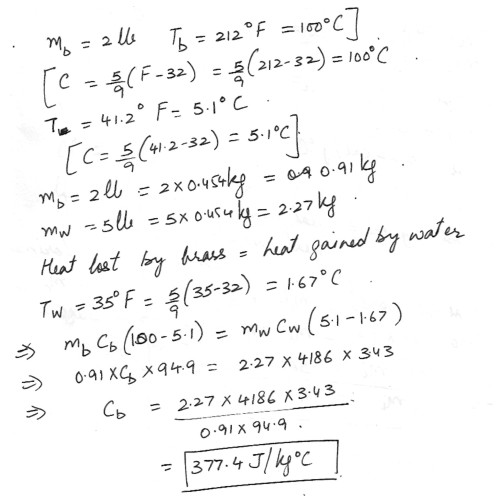 m_b = 2 lb T_b = 212°F = 100°C]
[C = 5/9 (F-32) = 5/9 (212-32) = 100°C.
T = 41.2° F = 5.1° C.
[C = 5/9 (41.2-32) = 5.1°C]
m_b = 2 lb = 2 x 0.454 kg = 0.91 kg.
m_W = 5 lb = 5 x 0.454 kg = 2.27 kg.
Heat lost by brass = heat gained by water
T_W = 35°F = 5/9 (35-32) = 1.67°C.
⇒ m_b C_b (100-5.1) = m_W C_W (5.1-1.67)
⇒ 0.91 x C_b x 94.9 = 2.27 x 4186 x 343
⇒ C_b = 2.27 x 4186 x 3.43 / 0.91 x 94.9.
= 377.4 J/kg°C